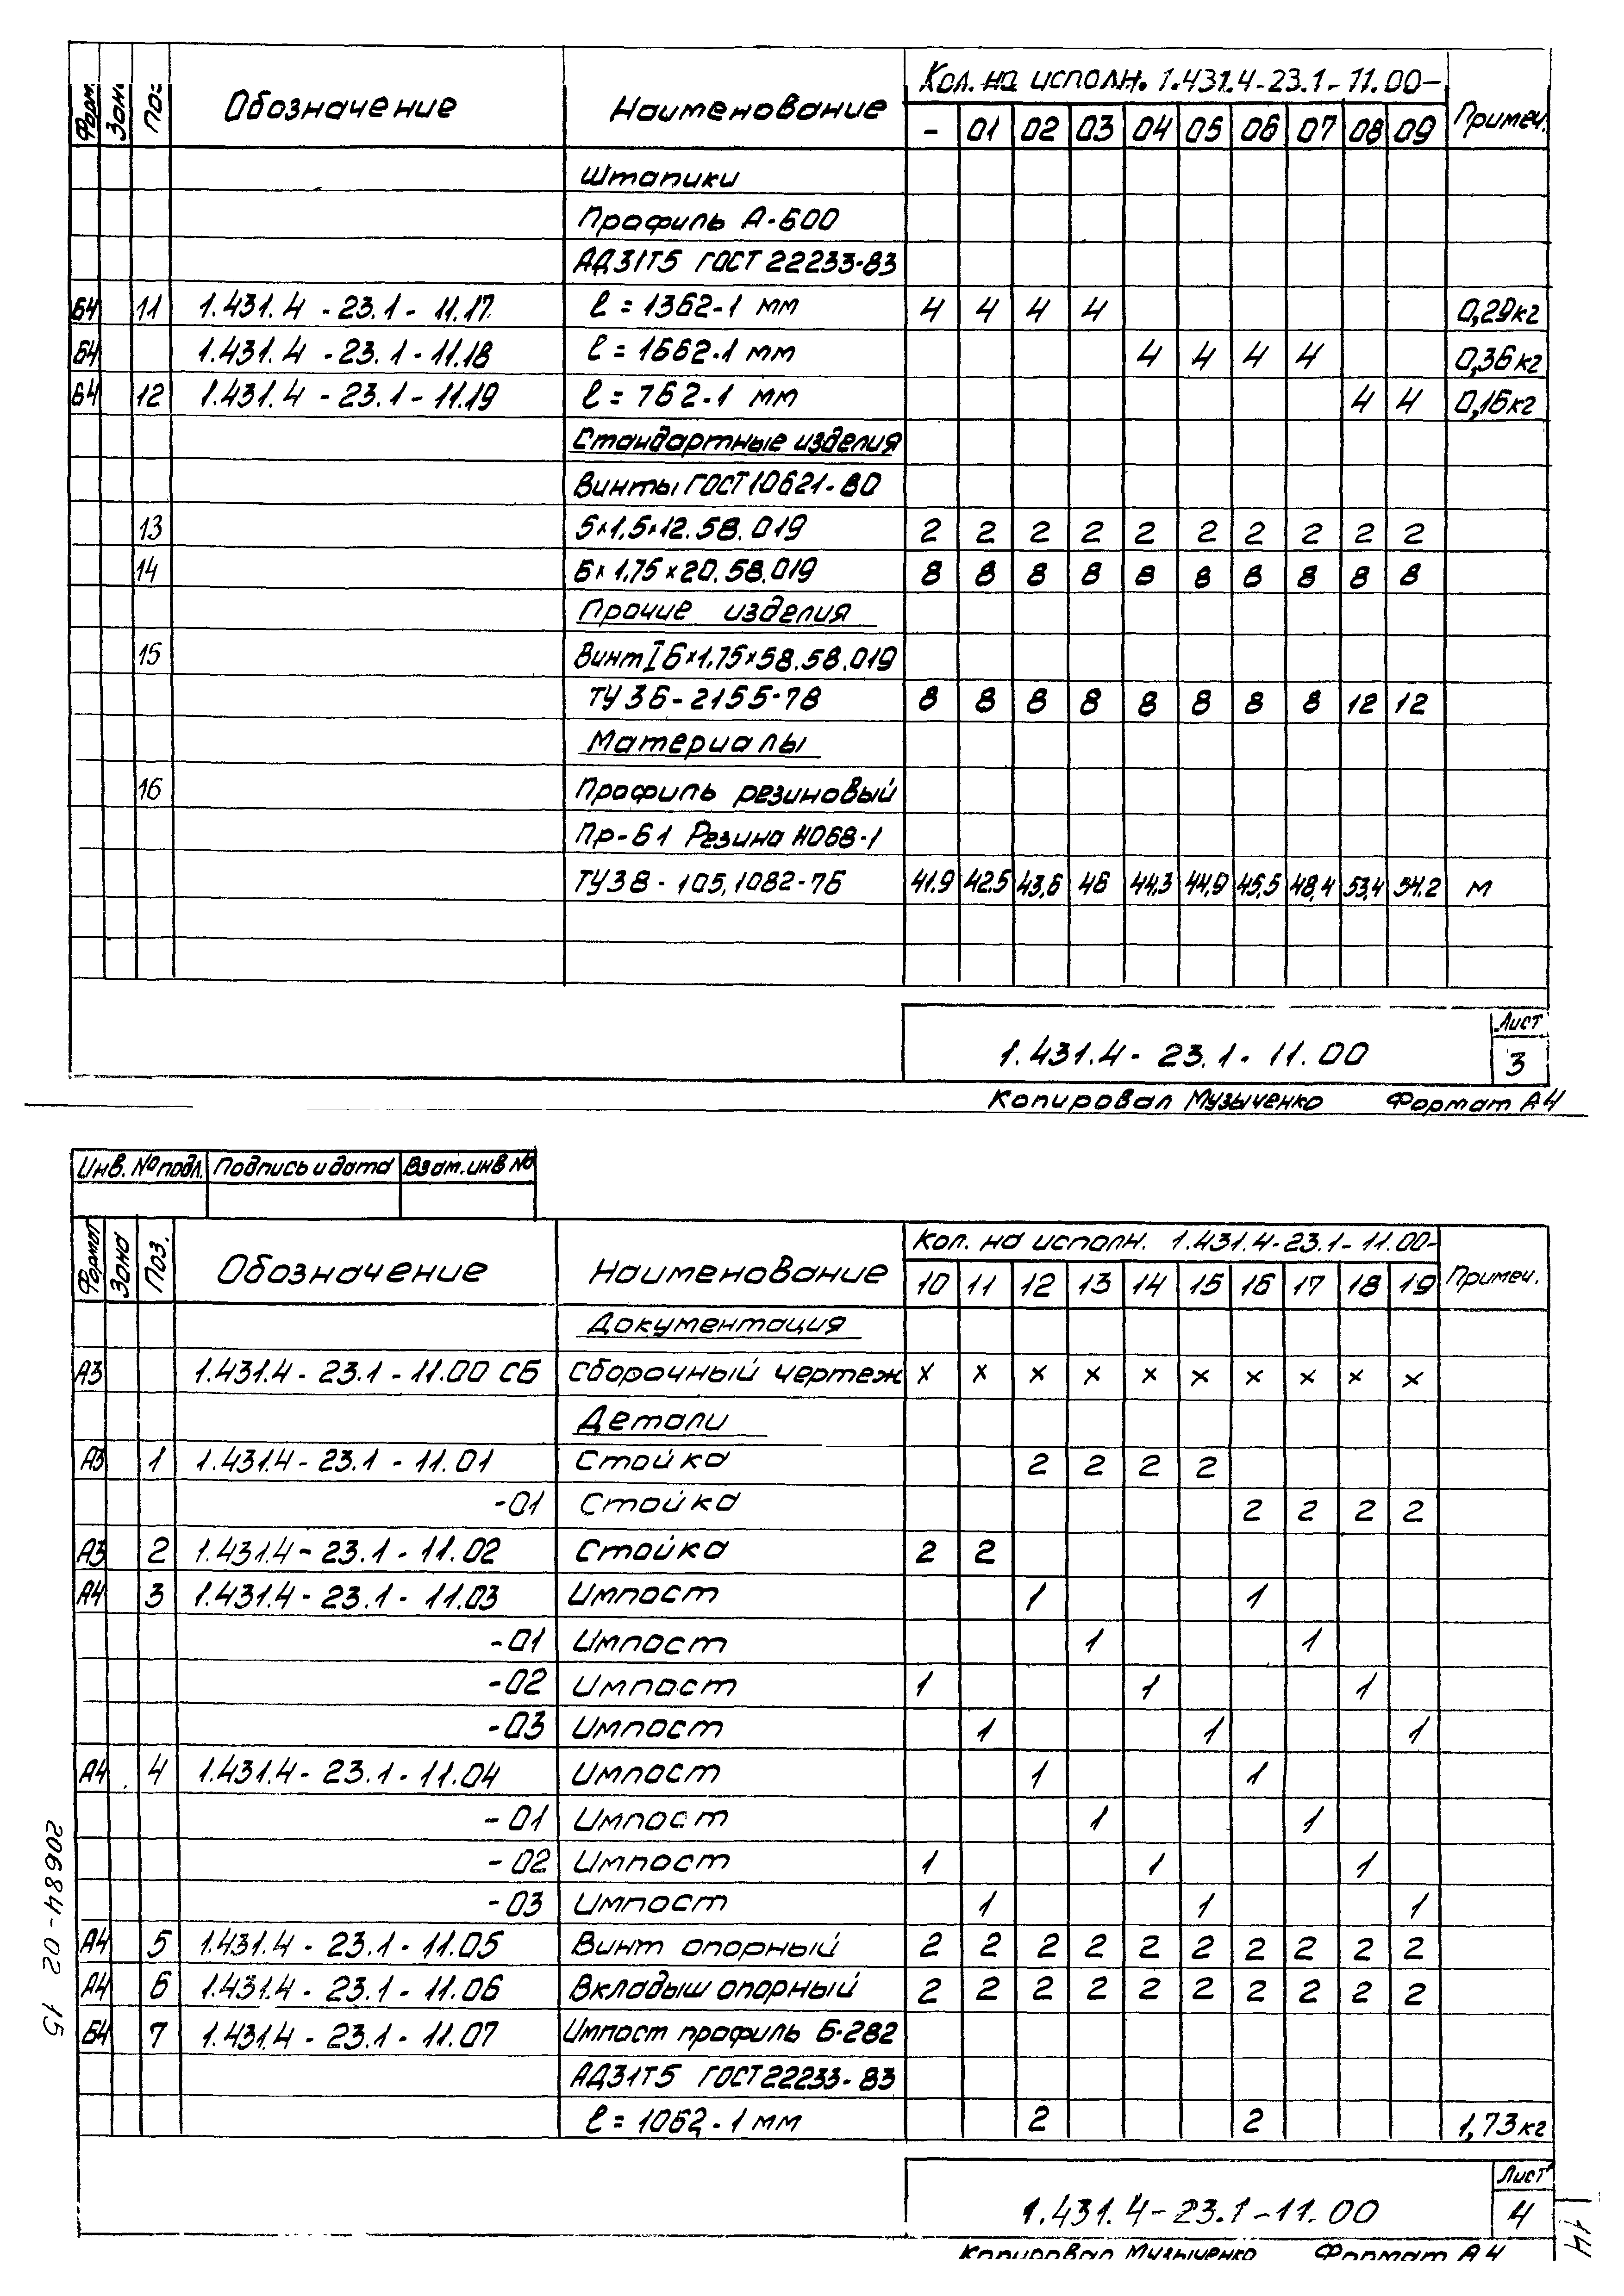 Форм. Зон. Поз Обозначение Наименование Кол. на исполн. 1.431.4-23.1-11.00- Примеч.
- 01 02 03 04 05 06 07 08 09
Штапики
Профиль А-600
АД31Т5 ГОСТ 22233-83
Б4 11 1.431.4 - 23.1 - 11.17 ℓ = 1362-1 мм 4 4 4 4 0,29кг
Б4 1.431.4 - 23.1 - 11.18 ℓ = 1662-1 мм 4 4 4 4 0,36кг
Б4 12 1.431.4 - 23.1 - 11.19 ℓ = 762-1 мм 4 4 0,16кг
Стандартные изделия
Винты ГОСТ 10621-80
13 5×1,5×12.58.019 2 2 2 2 2 2 2 2 2 2
14 6×1,75×20.58.019 8 8 8 8 8 8 8 8 8 8
Прочие изделия
15 Винт I 6×1,75×58.58.019
ТУ 36-2155-78 8 8 8 8 8 8 8 8 12 12
Материалы
16 Профиль резиновый
Пр-61 Резина НО68-1
ТУ38-105.1082-76 41.9 42.5 43,6 46 44,3 44,9 45,5 48,4 53,4 54.2 м
1.431.4- 23.1- 11.00
Лист
3
Копировал Музыченко Формат А4
Инв. № подл. Подпись и дата Взам. инв №
Формат Зона Поз. Обозначение Наименование Кол. на исполн. 1.431.4-23.1-11.00- Примеч.
10 11 12 13 14 15 16 17 18 19
Документация
А3 1.431.4 - 23.1 - 11.00 СБ Сборочный чертеж × × × × × × × × × ×
Детали
А3 1 1.431.4 - 23.1 - 11.01 Стойка 2 2 2 2
-01 Стойка 2 2 2 2
А3 2 1.431.4 - 23.1 - 11.02 Стойка 2 2
А4 3 1.431.4 - 23.1 - 11.03 Импост 1 1
-01 Импост 1 1
-02 Импост 1 1 1
-03 Импост 1 1 1
А4 4 1.431.4 - 23.1 - 11.04 Импост 1 1
-01 Импост 1 1
-02 Импост 1 1 1
-03 Импост 1 1 1
А4 5 1.431.4 - 23.1 - 11.05 Винт опорный 2 2 2 2 2 2 2 2 2 2
А4 6 1.431.4 - 23.1 - 11.06 Вкладыш опорный 2 2 2 2 2 2 2 2 2 2
Б4 7 1.431.4 - 23.1 - 11.07 Импост профиль Б-282
АД31Т5 ГОСТ 22233-83
ℓ = 1062-1 мм 2 2 1,73кг
1.431.4-23.1-11.00
Лист
4
Копировал Музыченко Формат А4
20684-02 15
14